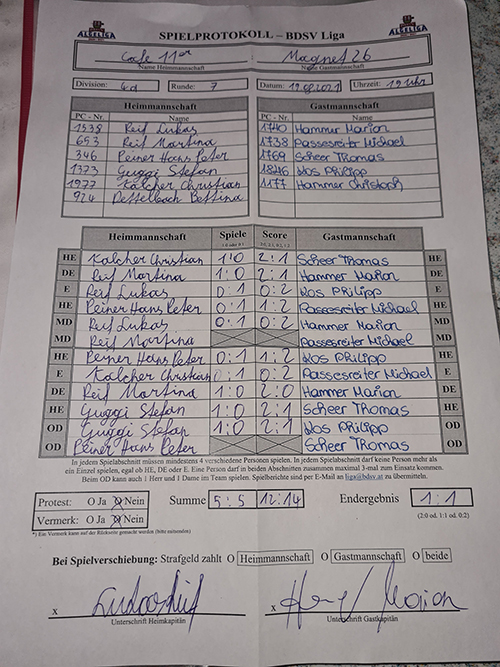 ALGELIGA SPIELPROTOKOLL – BDSV Liga
Cafe 11er Magnet 26
Name Heimmannschaft Name Gastmannschaft
Division: 4d Runde: 7 Datum: Uhrzeit: 19 Uhr
Heimmannschaft Gastmannschaft
PC - Nr. Name PC - Nr. Name
1538 Reif Lukas 1740 Hammer Marion
653 Reif Martina 1738 Passesreiter Michael
346 Peiner Hans Peter 1769 Scheer Thomas
1373 Guggi Stefan 1846 Wos Philipp
1977 Kalcher Christian 1177 Hammer Christoph
924 Dettelbach Bettina
Heimmannschaft Spiele Score Gastmannschaft
1:0 oder 0:1 2:0, 2:1, 0:2, 1:2
HE Kalcher Christian 1:0 2:1 Scheer Thomas HE
DE Reif Martina 1:0 2:1 Hammer Marion DE
E Reif Lukas 0:1 0:2 Wos Philipp E
HE Peiner Hans Peter 0:1 1:2 Passesreiter Michael HE
MD Reif Lukas 0:1 0:2 Hammer Marion MD
MD Reif Martina Passesreiter Michael MD
HE Peiner Hans Peter 0:1 1:2 Wos Philipp HE
E Kalcher Christian 0:1 0:2 Passesreiter Michael E
DE Reif Martina 1:0 2:0 Hammer Marion DE
HE Guggi Stefan 1:0 2:1 Scheer Thomas HE
OD Guggi Stefan 1:0 2:1 Wos Philipp OD
OD Peiner Hans Peter Scheer Thomas OD
In jedem Spielabschnitt müssen mindestens 4 verschiedene Personen spielen. In jedem Spielabschnitt darf keine Person mehr als
ein Einzel spielen, egal ob HE, DE oder E. Eine Person darf in beiden Abschnitten zusammen maximal 3-mal zum Einsatz kommen.
Beim OD kann auch 1 Herr und 1 Dame im Team spielen. Spielberichte sind per E-Mail an liga@bdsv.at zu übermitteln.
Protest: O Ja O Nein Summe 5:5 12:14 Endergebnis 1:1
Vermerk: O Ja O Nein (2:0 od. 1:1 od. 0:2)
*) Ein Vermerk kann auf der Rückseite gemacht werden (bitte
Bei Spielverschiebung: Strafgeld zahlt O Heimmannschaft O Gastmannschaft O beide
x x
Unterschrift Heimkapitän Unterschrift Gastkapitän